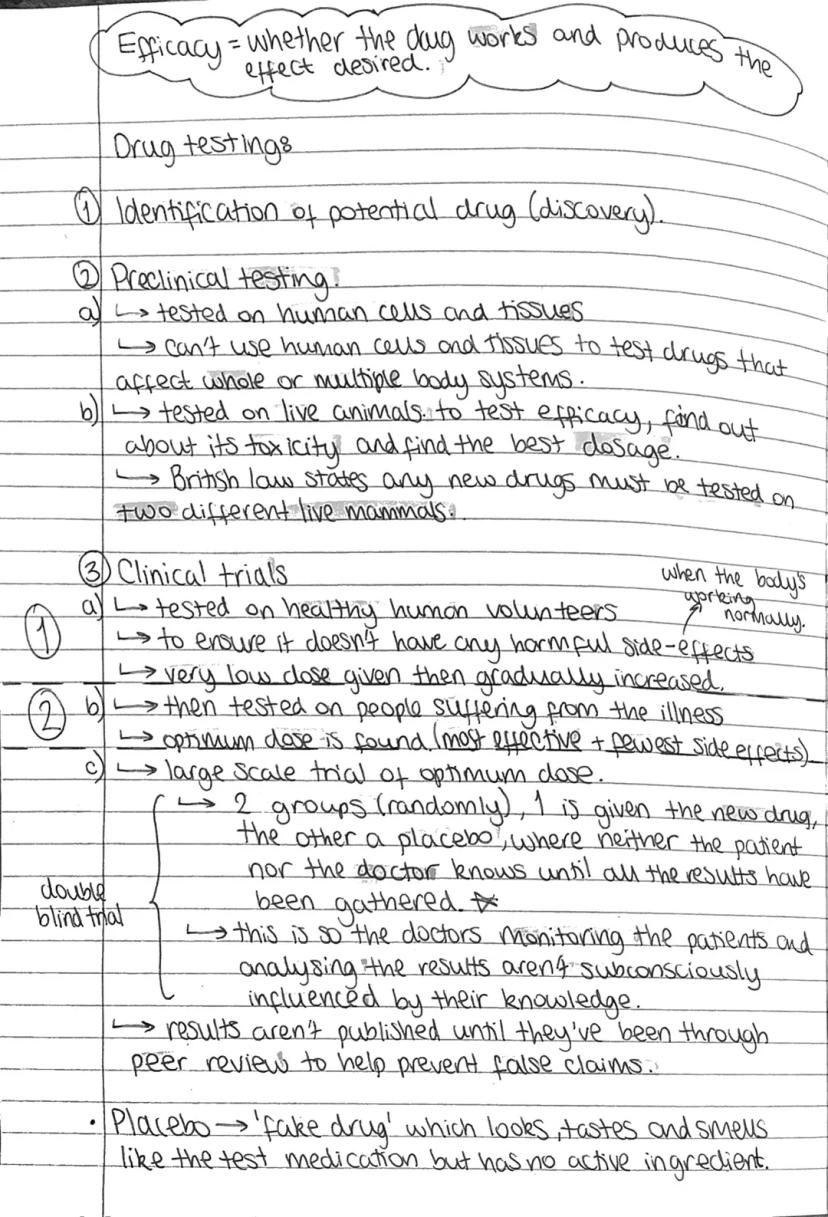 Efficacy = whether the drug works and produces the
effect desired.
Drug testing:
① Identification of potential drug (discovery).
② Preclinical testing:
a) ↳ tested on human cells and tissues
↳ can't use human cells and tissues to test drugs that
affect whole or multiple body systems.
b) ↳ tested on live animals to test efficacy, find out
about its toxicity and find the best dosage.
↳ British law states any new drugs must be tested on
two different live mammals.
③ Clinical trials
when the body's
working
normally.
① a) ↳ tested on healthy human volunteers
↳ to ensure it doesn't have any harmful side-effects
↳ very low dose given then gradually increased.
② b) ↳ then tested on people suffering from the illness
↳ optimum dose is found (most effective + fewest side effects)
c) ↳ large scale trial of optimum dose.
↳ 2 groups (randomly), 1 is given the new drug,
the other a placebo, where neither the patient
nor the doctor knows until all the results have
been gathered. ☆
double
blind trial
↳ this is so the doctors monitoring the patients and
analysing the results aren't subconsciously
influenced by their knowledge.
↳ results aren't published until they've been through
peer review to help prevent false claims.
• Placebo → 'fake drug' which looks, tastes and smells
like the test medication but has no active ingredient.